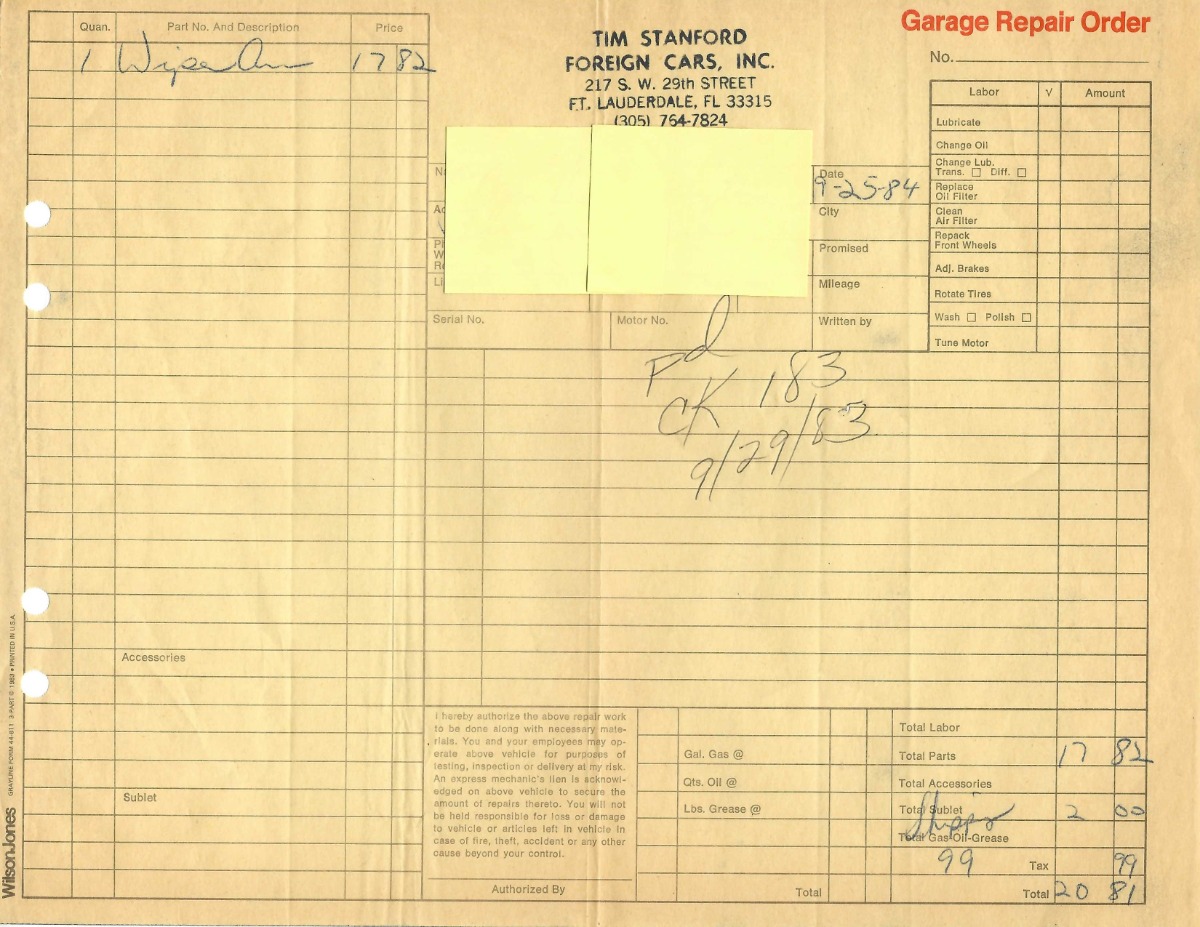 Quan. Part No. And Description Price
1 Wiper Arm 17 82
Accessories
Sublet
TIM STANFORD
FOREIGN CARS, INC.
217 S. W. 29th STREET
FT. LAUDERDALE, FL 33315
(305) 764-7824
Garage Repair Order
No.
Date
9-25-84
City
Promised
Mileage
Serial No. Motor No. Written by
Labor √ Amount
Lubricate
Change Oil
Change Lub.
Trans. ☐ Diff. ☐
Replace
Oil Filter
Clean
Air Filter
Repack
Front Wheels
Adj. Brakes
Rotate Tires
Wash ☐ Polish ☐
Tune Motor
Pd
CK 183
9/29/83
I hereby authorize the above repair work
to be done along with necessary mate-
rials. You and your employees may op-
erate above vehicle for purposes of
testing, inspection or delivery at my risk.
An express mechanic's lien is acknowl-
edged on above vehicle to secure the
amount of repairs thereto. You will not
be held responsible for loss or damage
to vehicle or articles left in vehicle in
case of fire, theft, accident or any other
cause beyond your control.
Authorized By
Gal. Gas @
Qts. Oil @
Lbs. Grease @
Total
Total Labor
Total Parts 17 82
Total Accessories
Total Sublet 2 00
Shipping
Total Gas-Oil-Grease
99 Tax 99
Total 20 81
WilsonJones GRAYLINE FORM 44-811 3-PART © 1983 • PRINTED IN U.S.A.